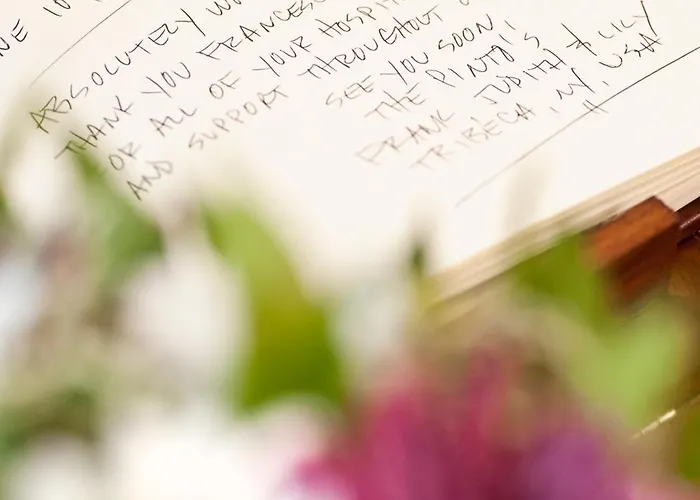 NE
ABSOLUTELY
THANK YOU FRANCESC
OR ALL OF YOUR HOSPIT
AND SUPPORT THROUGHOUT
SEE YOU SOON!
THE PINTO'S
FRANK, JUDITH & LILY
TRIBECA, NY, USA